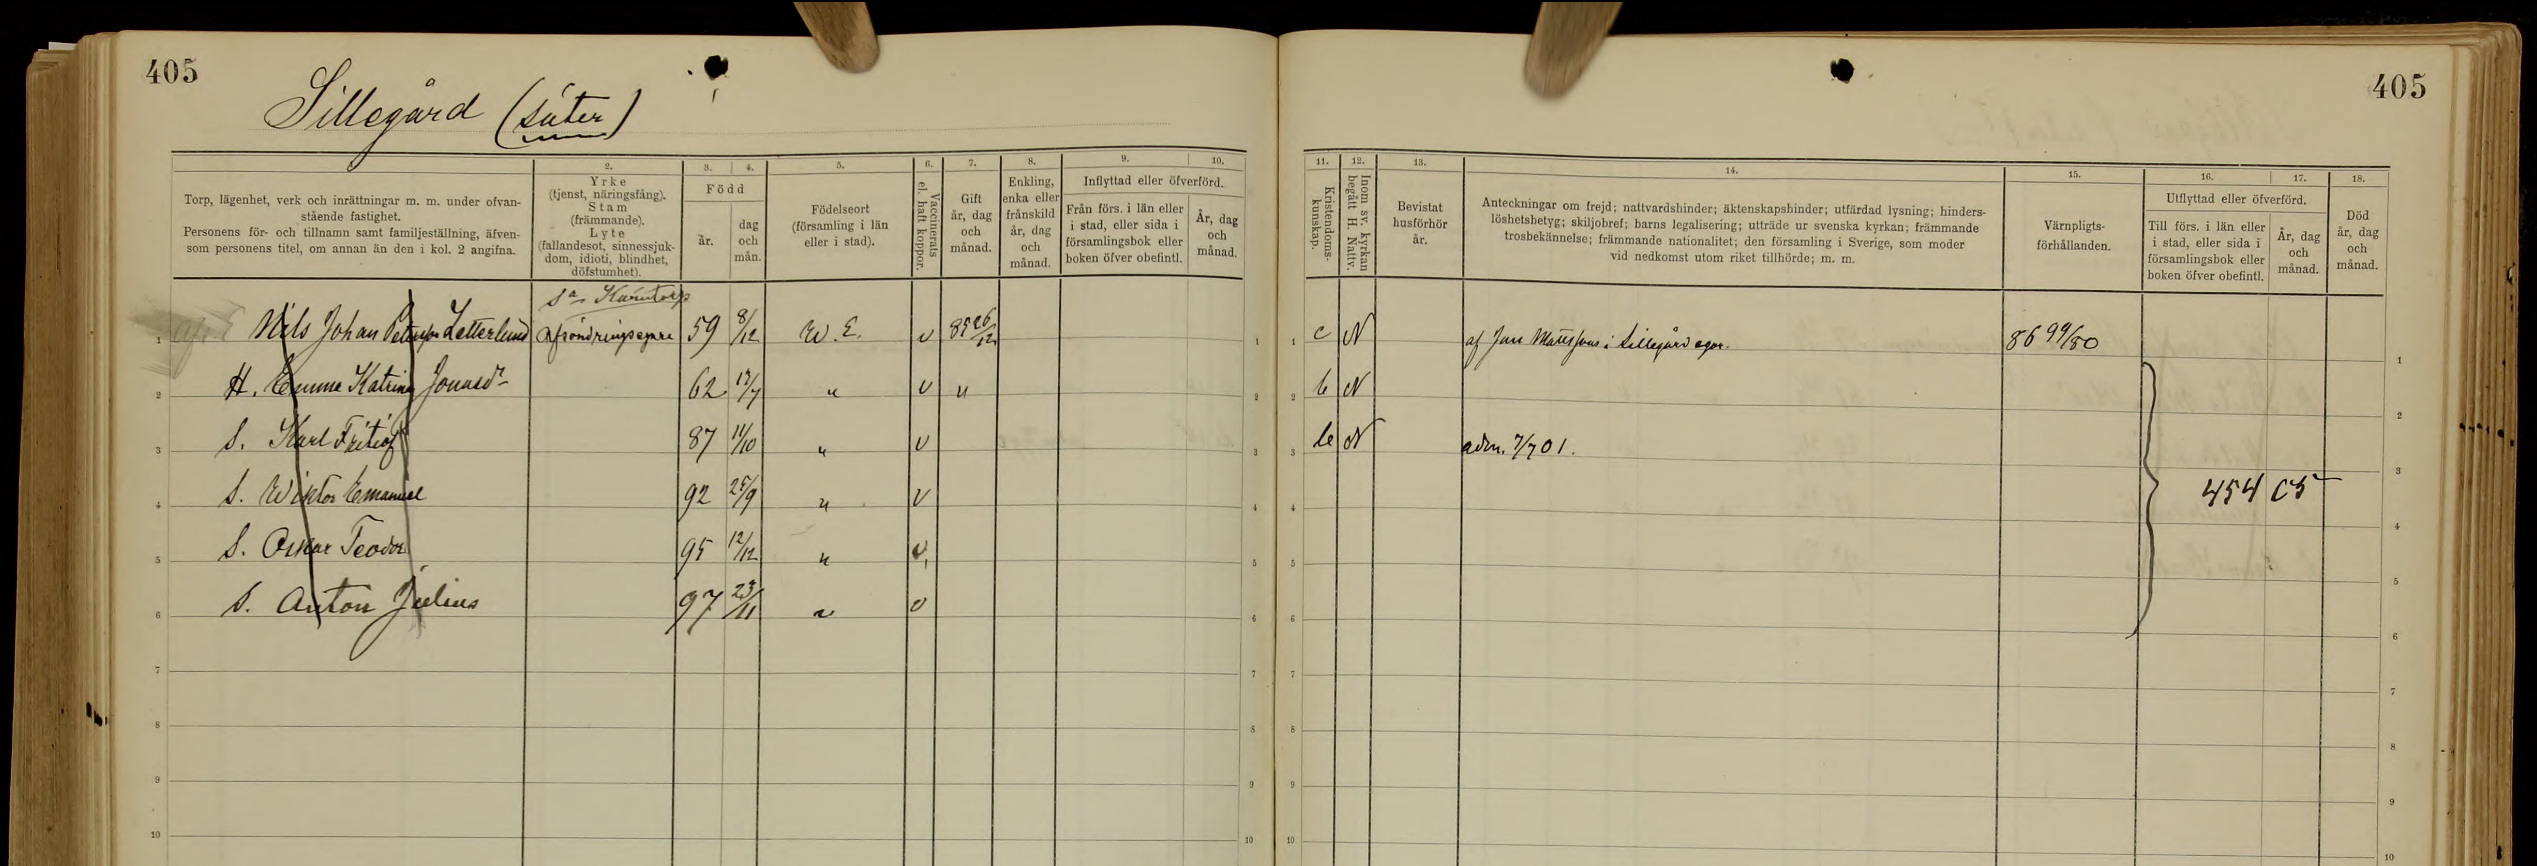 405
405
Sillegård (säter)
2.
3.
4.
5.
6.
7.
8.
9.
10.
Torp, lägenhet, verk och inrättningar m. m. under ofvan-
stående fastighet.
Personens för- och tillnamn samt familjeställning, äfven-
som personens titel, om annan än den i kol. 2 angifna.
Yrke
(tjenst, näringsfång).
Stam
(främmande).
Lyte
(fallandesot, sinnessjuk-
dom, idioti, blindhet,
döfstumhet).
Född
år.
dag
och
mån.
Födelseort
(församling i län
eller i stad).
Vaccinerats
el. haft koppor.
Gift
år, dag
och
månad.
Enkling,
enka eller
frånskild
år, dag
och
månad.
Inflyttad eller öfverförd.
Från förs. i län eller
i stad, eller sida i
församlingsbok eller
boken öfver obefintl.
År, dag
och
månad.
11.
12.
13.
14.
15.
16.
17.
18.
Kristendoms-
kunskap.
Inom sv. kyrkan
begått H. Nattv.
Bevistat
husförhör
år.
Anteckningar om frejd; nattvardshinder; äktenskapshinder; utfärdad lysning; hinders-
löshetsbetyg; skiljobref; barns legalisering; utträde ur svenska kyrkan; främmande
trosbekännelse; främmande nationalitet; den församling i Sverige, som moder
vid nedkomst utom riket tillhörde; m. m.
Värnpligts-
förhållanden.
Utflyttad eller öfverförd.
Till förs. i län eller
i stad, eller sida i
församlingsbok eller
boken öfver obefintl.
År, dag
och
månad.
Död
år, dag
och
månad.
1 Nils Johan Petersson Zetterlund 59 8/12 W. E. v 85 26/12 1
1 c N af Jan Mattssons i Sillegård egor. 86 99/80 1
2 H. Emma Katrina Jonasdr 62 17/7 " v " 2
2 b N 2
3 S. Karl Fritiof 87 11/10 " v 3
3 N adm. 7/7 01. 3
4 S. Wiktor Emanuel 92 25/9 " v 4
4 454 05 4
5 S. Oskar Teodor 95 12/12 " v 5
5 5
6 S. Anton Julius 97 23/11 " v 6
6 6
7 7
7 7
8 8
8 8
9 9
9 9
10 10
10 10